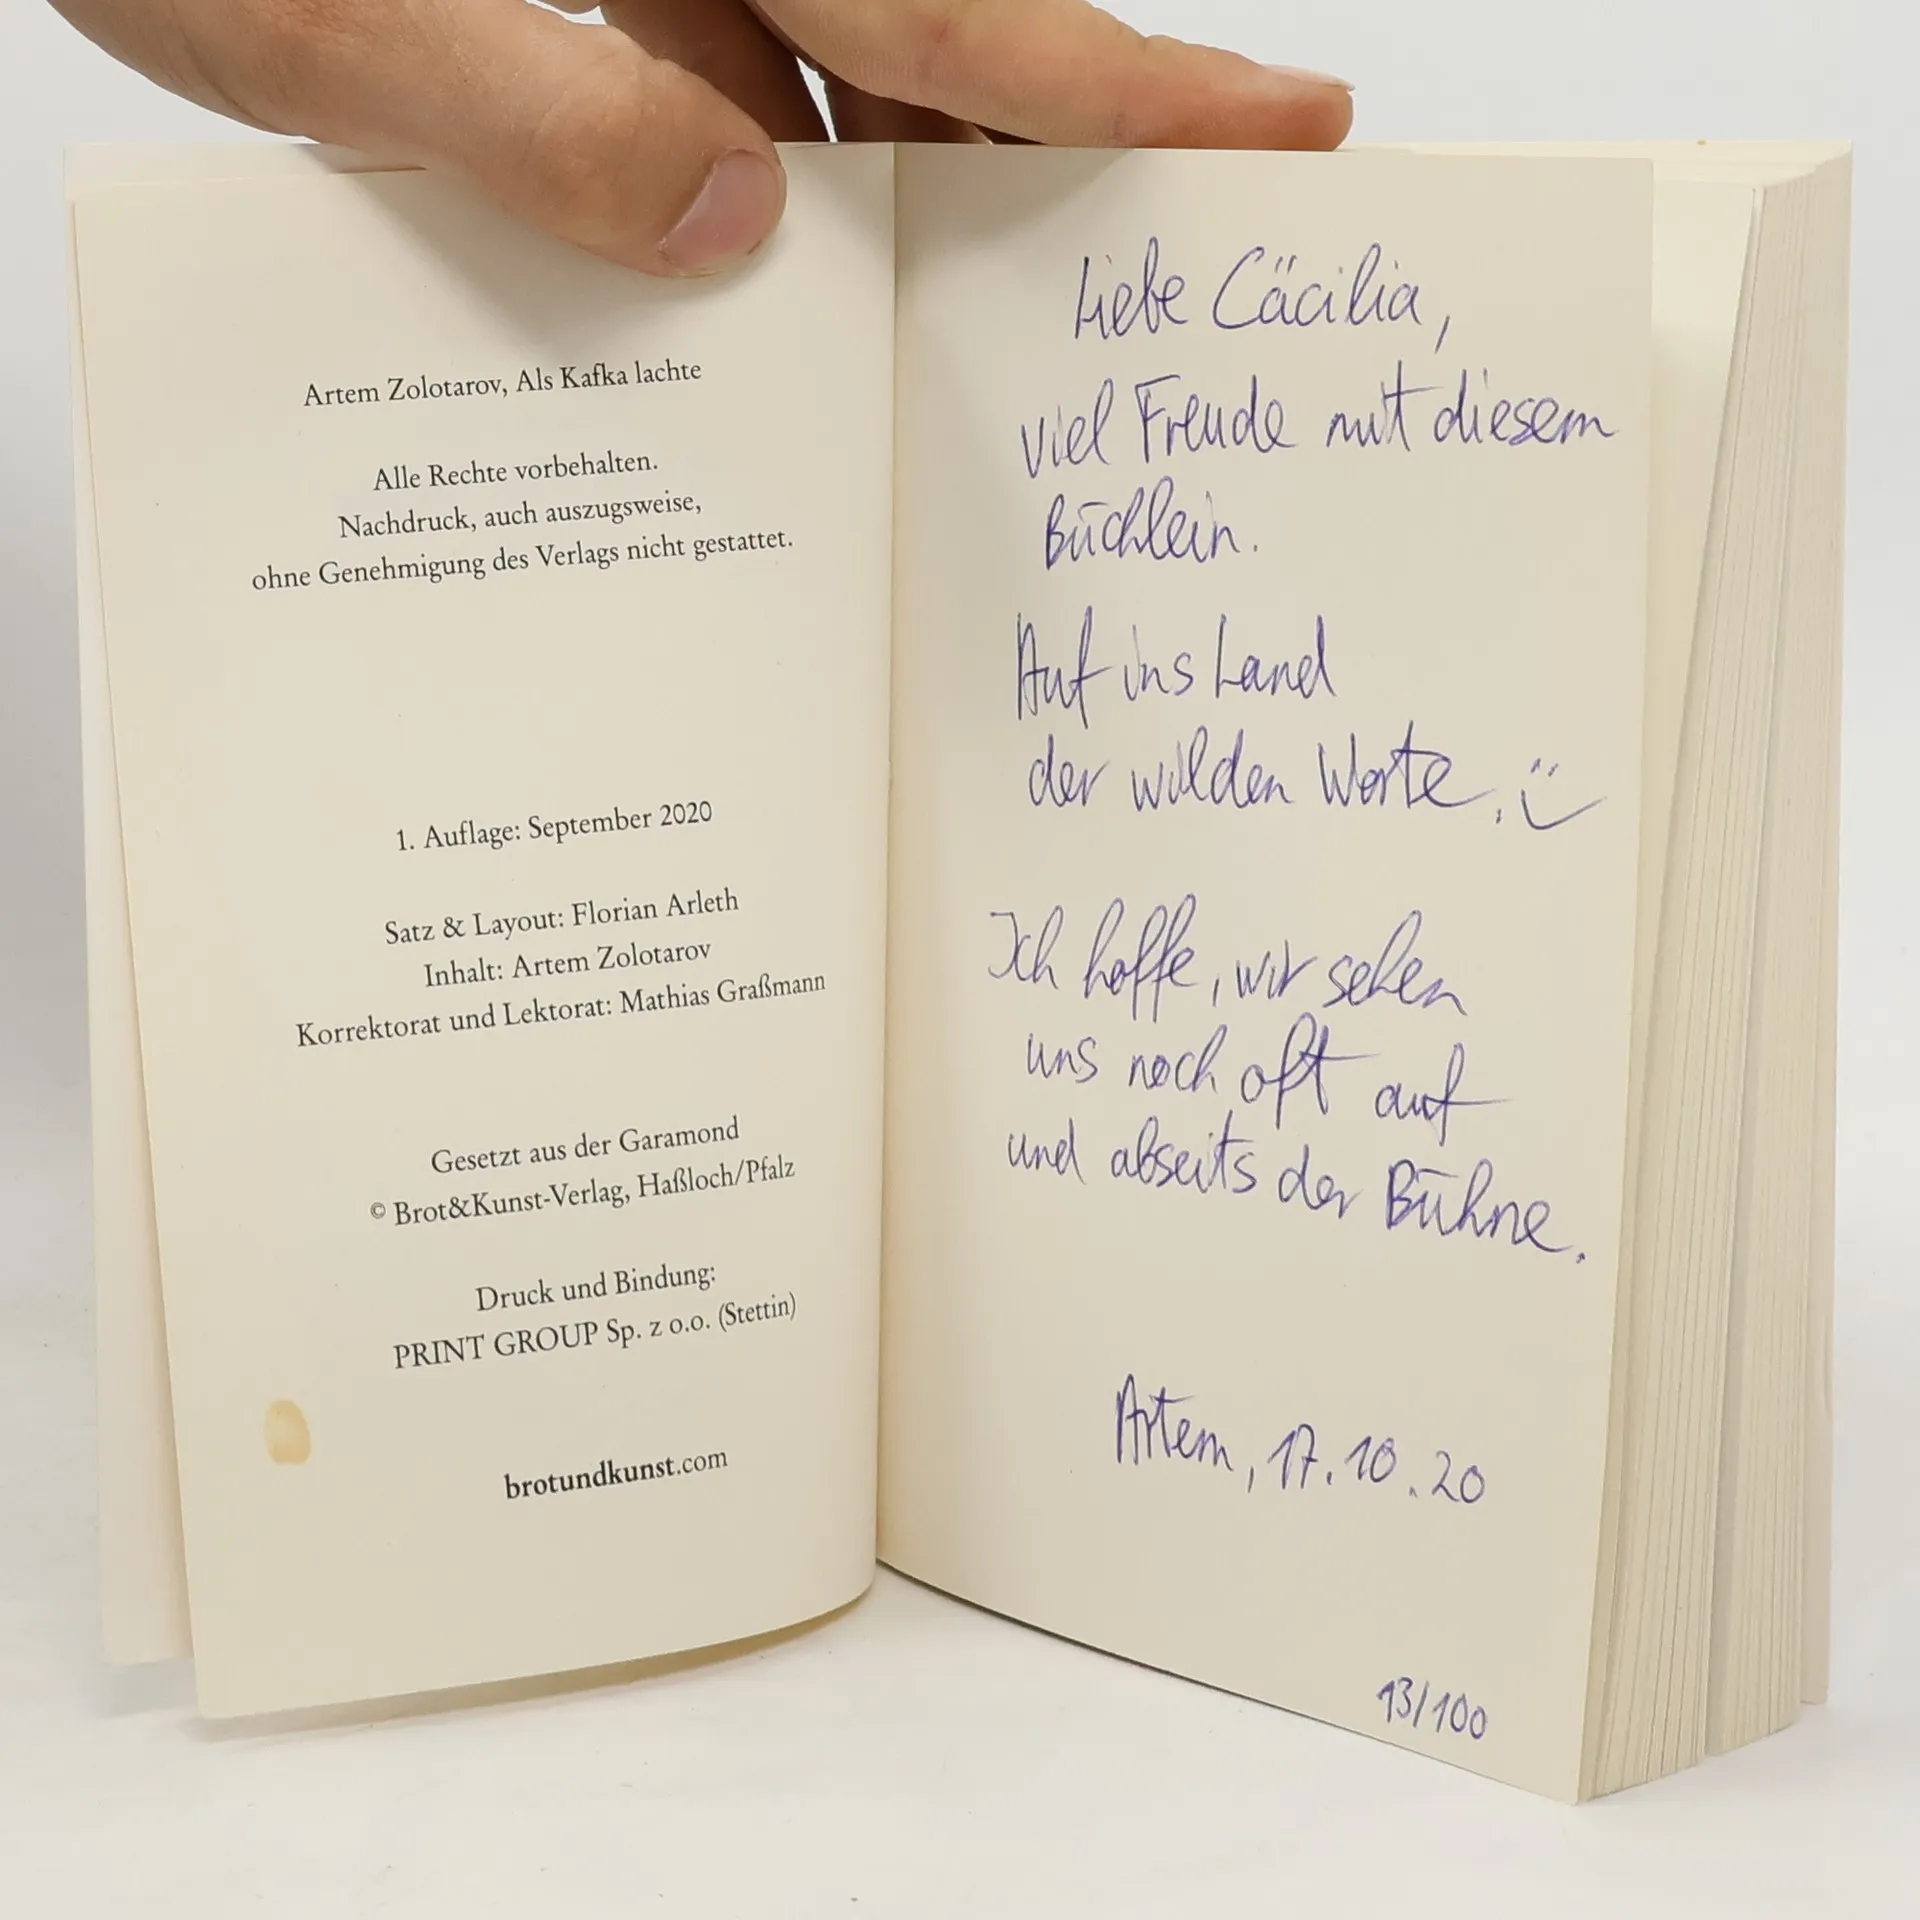 Artem Zolotarov, Als Kafka lachte
Alle Rechte vorbehalten.
Nachdruck, auch auszugsweise,
ohne Genehmigung des Verlags nicht gestattet.
1. Auflage: September 2020
Satz & Layout: Florian Arleth
Inhalt: Artem Zolotarov
Korrektorat und Lektorat: Mathias Graßmann
Gesetzt aus der Garamond
© Brot&Kunst-Verlag, Haßloch/Pfalz
Druck und Bindung:
PRINT GROUP Sp. z o.o. (Stettin)
brotundkunst.com
Liebe Cäcilia,
viel Freude mit diesem
Büchlein.
Auf ins Land
der wilden Worte. :)
Ich hoffe, wir sehen
uns noch oft auf
und abseits der Bühne.
Artem, 17.10.20
13/100